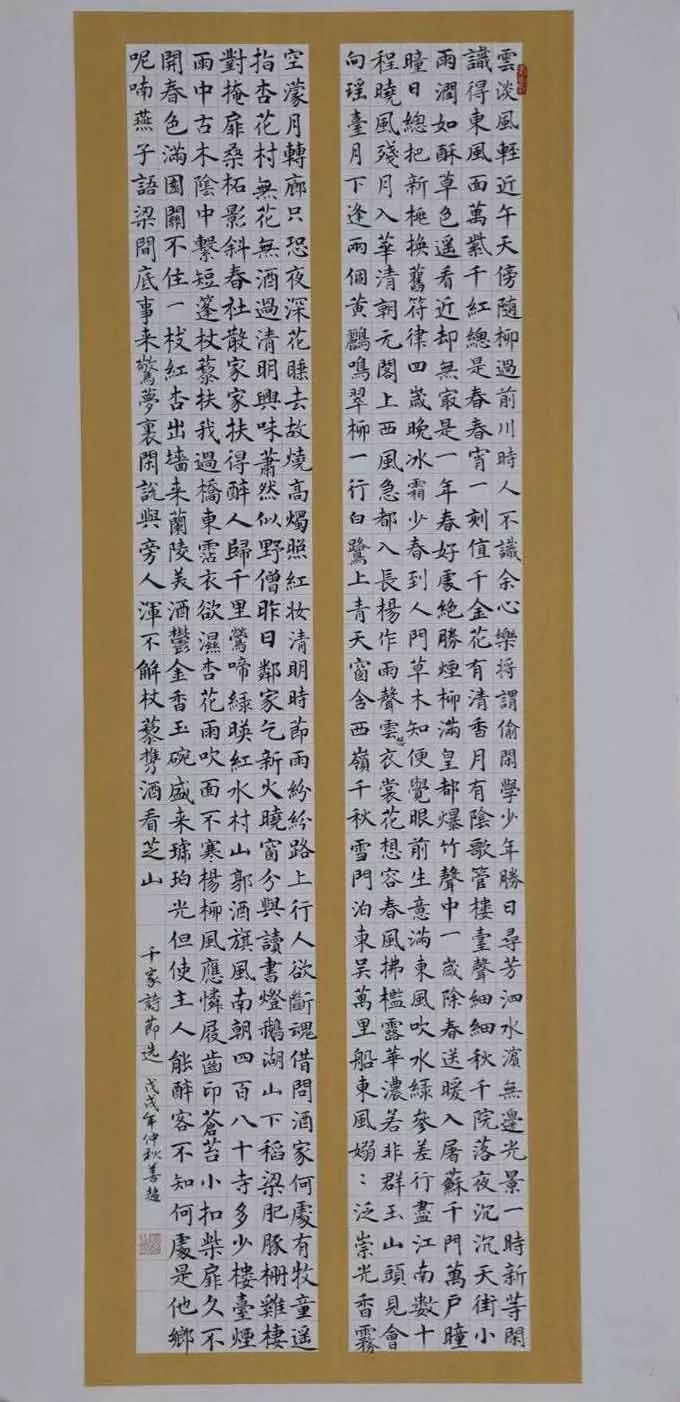 雲淡風輕近午天傍隨柳過前川時人不識余心樂將謂偷閑學少年勝日尋芳泗水濱無邊光景一時新等閑
識得東風面萬紫千紅總是春春宵一刻值千金花有清香月有陰歌管樓臺聲細細秋千院落夜沉沉天街小
雨潤如酥草色遥看近却無㝡是一年春好處絶勝煙柳滿皇都爆竹聲中一歲除春送暖入屠蘇千門萬户曈
曈日總把新桃換舊符律四歲晚冰霜少春到人門草木知便覺眼前生意滿東風吹水綠參差行盡江南数十
程曉風殘月入華清朝元閣上西風急都入長楊作雨聲雲想衣裳花想容春風拂檻露華濃若非群玉山頭見會
向瑶臺月下逢兩個黄鸝鳴翠柳一行白鷺上青天窗含西嶺千秋雪門泊東吴萬里船東風嫋〻泛崇光香霧
空濛月轉廊只恐夜深花睡去故燒高燭照紅妆清明時節雨紛紛路上行人欲斷魂借問酒家何處有牧童遥
指杏花村無花無酒過清明興味蕭然似野僧昨日鄰家乞新火曉窗分與讀書燈鵝湖山下稻粱肥豚栅雞棲
對掩扉桑柘影斜春社散家家扶得醉人歸千里鶯啼綠暎紅水村山郭酒旗風南朝四百八十寺多少樓臺煙
雨中古木陰中繫短篷杖藜扶我過橋東霑衣欲濕杏花雨吹面不寒楊柳風應憐屐齒印蒼苔小扣柴扉久不
開春色滿園關不住一枝紅杏出墻来蘭陵美酒鬱金香玉碗盛来琥珀光但使主人能醉客不知何處是他鄉
呢喃燕子語梁間底事来驚夢裏閑說與旁人渾不解杖藜携酒看芝山
千家詩節选 戊戌年仲秋善趙